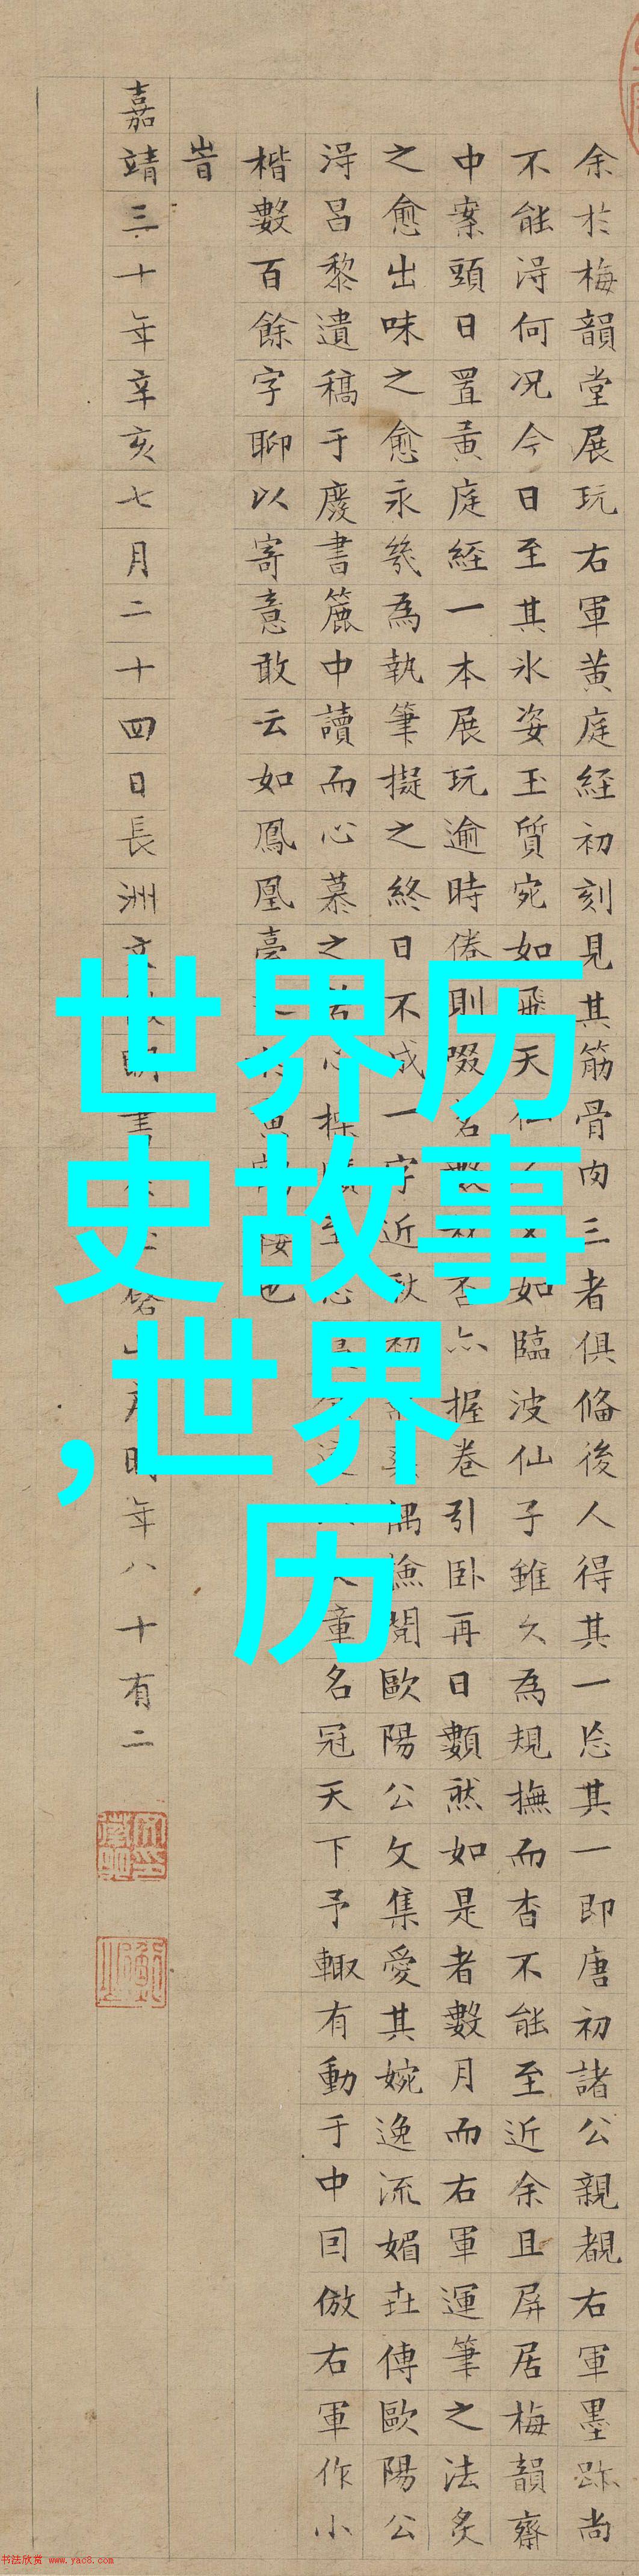 余於梅韻堂展玩右軍黃庭経初刻見其筋骨肉三者俱俻後人得其一忘其一即唐初諸公親覩右軍墨跡尚
不能淂何况今日至其氷姿玉質宛如飛天仙如臨波仙子雖久為規撫而杳不能至近余且屏居梅韻齋
中案頭日置黃庭経一本展玩逾時倦則啜茗數杯否亦握卷引卧再日數然如是者數月而右軍運筆之法炙
之愈出味之愈永幾為執筆擬之終日不成一字近秋初偶撿閲歐陽公文集愛其婉逸流媚再傳歐陽公
淂呂黎遺稿于廢書簏中讀而心慕之苦心探至名冠天下予輙有動于中回倣右軍作小
楷數百餘字聊以寄意敢云如鳳凰臺也
旹
嘉靖三十年辛亥七月二十四日長洲文徵明書時年八十有二
世界历
史故事
,世界
历
书法欣赏 www.yac8.com